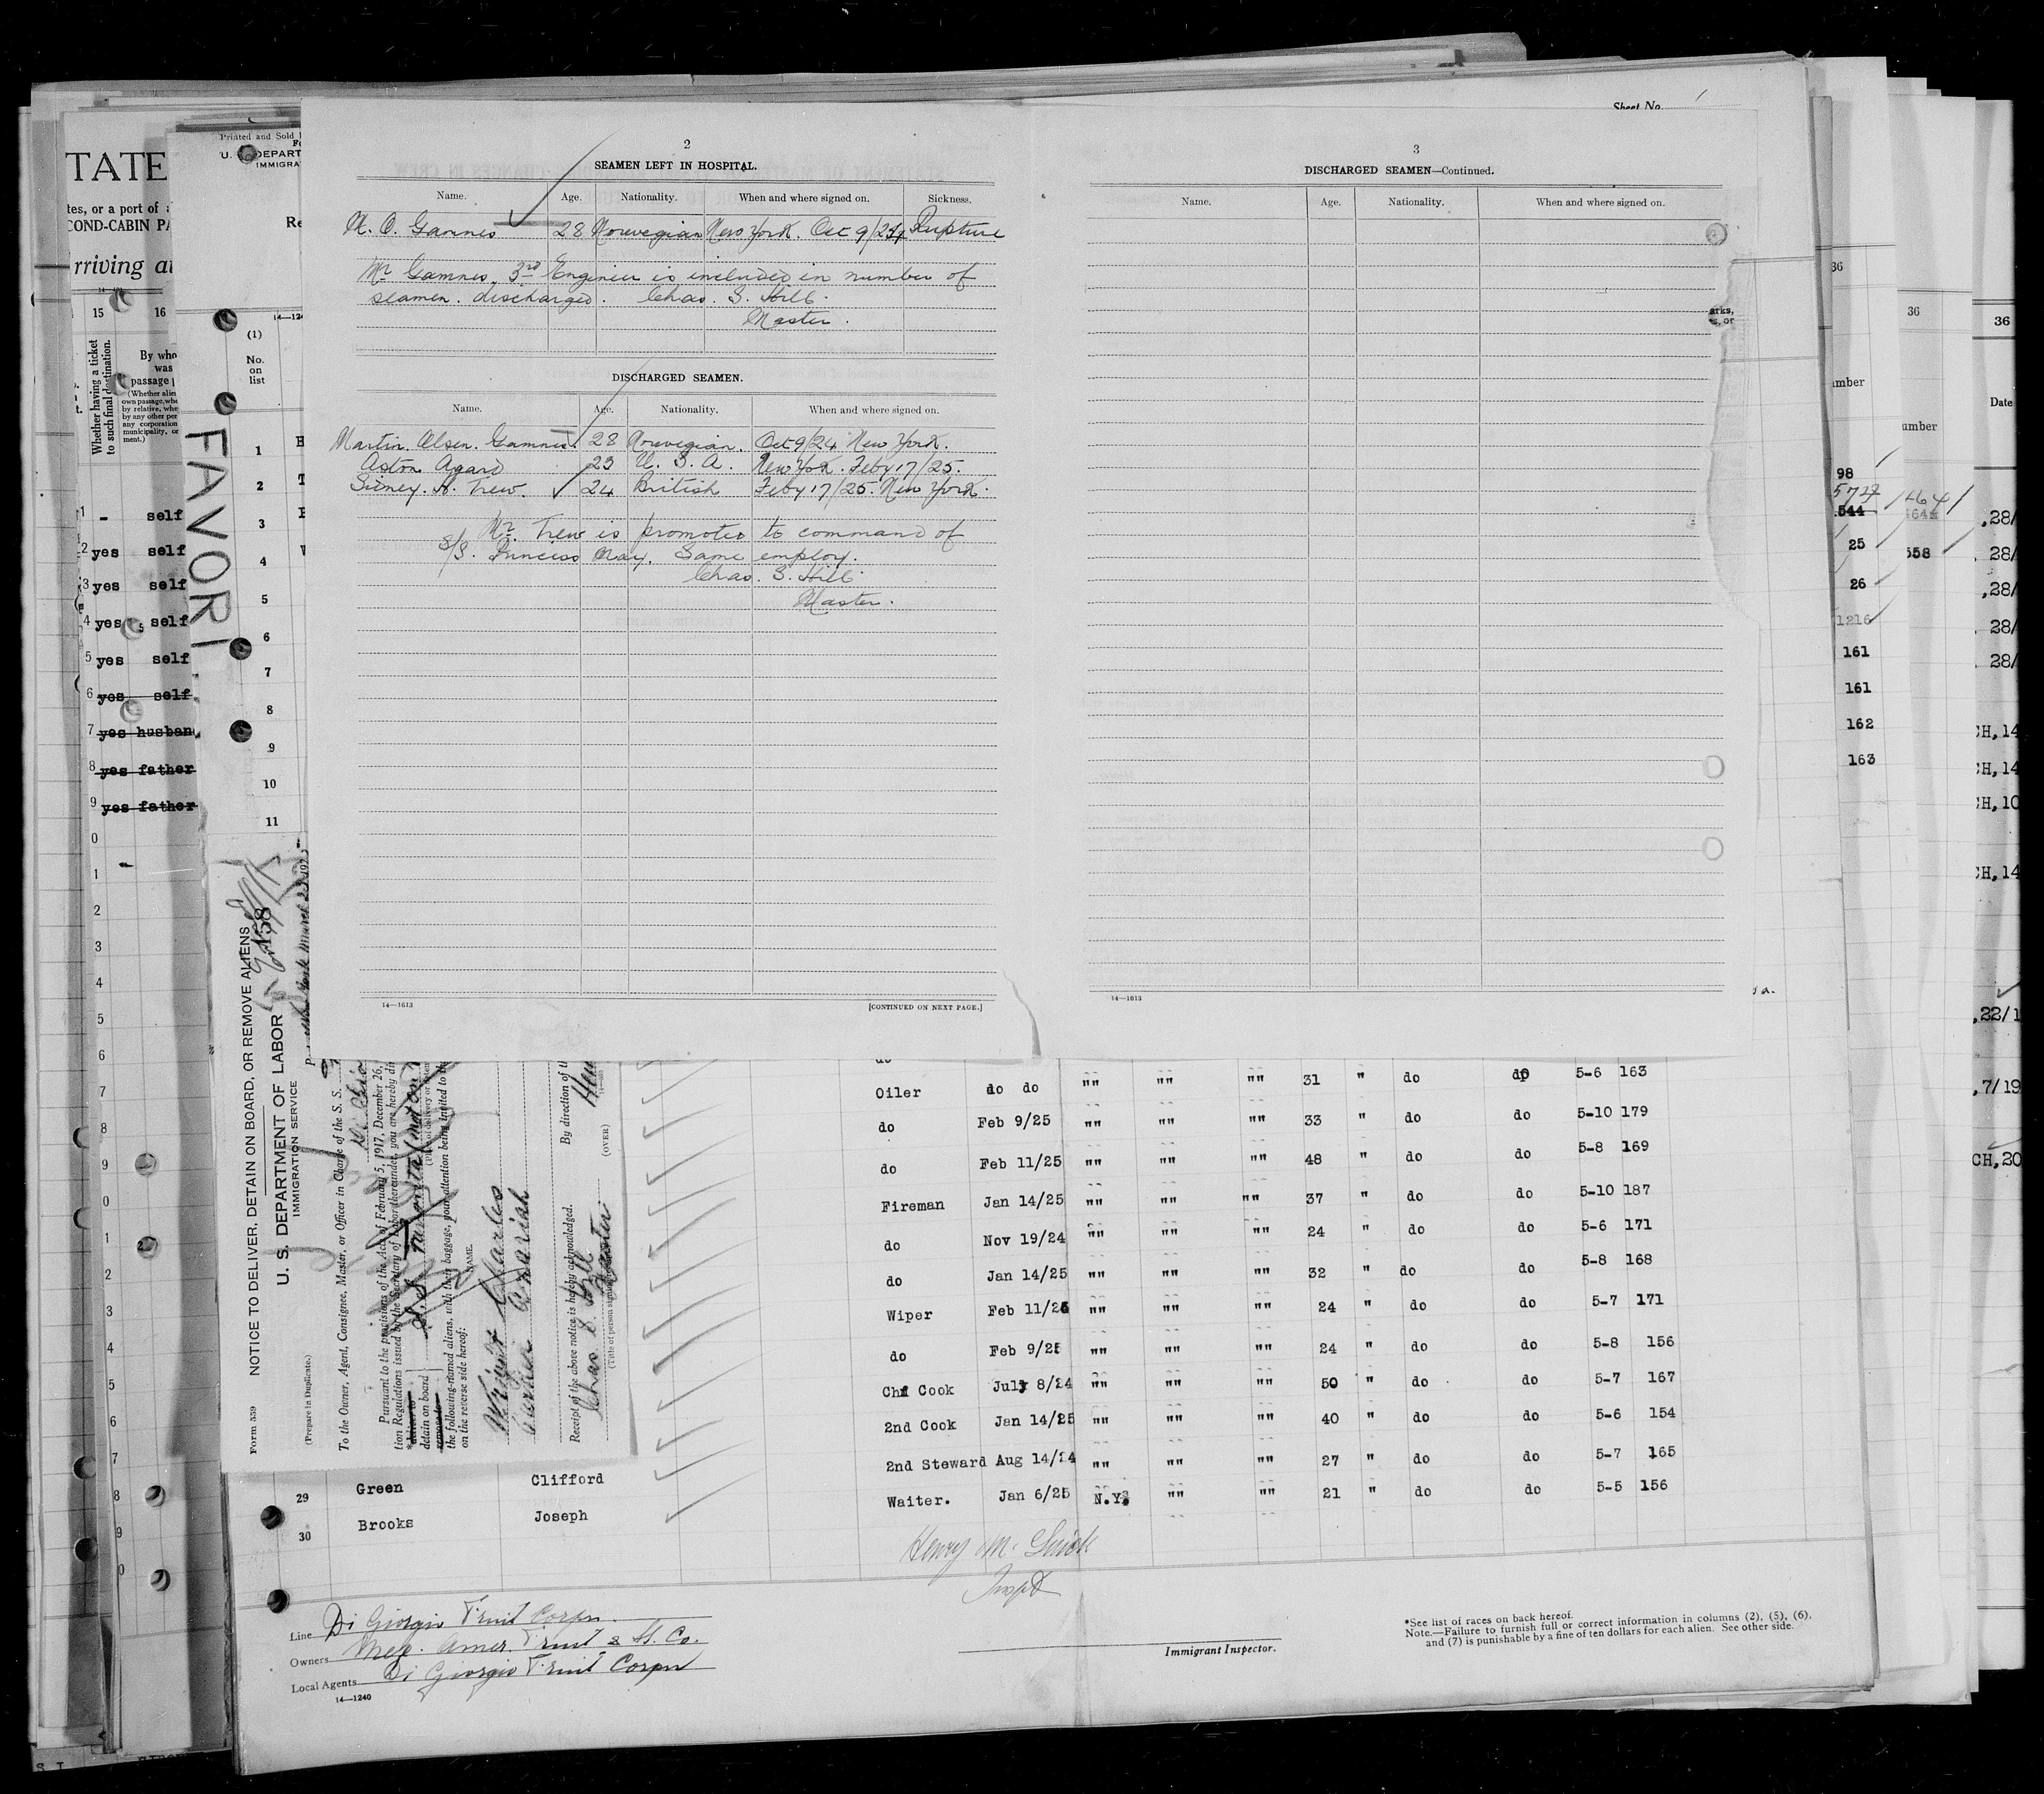 Sheet No. 1
2
SEAMEN LEFT IN HOSPITAL.
Name. Age. Nationality. When and where signed on. Sickness.
M. O. Gamnes 28 Norwegian New York. Oct 9/24 Rupture
Mr Gamnes. 3rd Engineer is included in number of
seamen. discharged. Chas. S. Hill.
Master.
DISCHARGED SEAMEN.
Name. Age. Nationality. When and where signed on.
Martin. Olsen. Gamnes. 28 Norwegian. Oct 9/24 New York.
Aston Agard 23 U. S. A. New York. Feby 17/25.
Sidney. H. Trew. 24 British Feby 17/25. New York.
Mr. Trew is promoted to command of
S/S. Princess May. Same employ.
Chas. S. Hill
Master.
14—1613 [CONTINUED ON NEXT PAGE.]
3
DISCHARGED SEAMEN—Continued.
Name. Age. Nationality. When and where signed on.
14—1613
TATE
tes, or a port of
COND-CABIN PA
rriving at
15 16
Whether having a ticket
to such final destination.
By who
was
passage
(Whether alien
own passage, whe
by relative, whe
by any other per
any corporation
municipality, or
ment.)
1 - self
2 yes self
3 yes self
4 yes self
5 yes self
6 yes self
7 yes husban
8 yes father
9 yes father
0
1
2
3
4
5
6
7
8
9
0
1
2
3
4
5
6
7
8
9
0
Printed and Sold
U. S. DEPART
IMMIGRA
Re
14—124
(1)
No.
on
list
FAVORI
1 H
2 T
3
4
5
6
7
8
9
10
11
Form 559
NOTICE TO DELIVER, DETAIN ON BOARD, OR REMOVE ALIENS
158
U. S. DEPARTMENT OF LABOR
IMMIGRATION SERVICE
(Prepare in Duplicate.)
To the Owner, Agent, Consignee, Master, or Officer in Charge of the S. S.
Pursuant to the provisions of the Act of February 5, 1917, December 26,
tion Regulations issued by the Secretary of Labor thereunder, you are hereby di
*deliver to
detain on board
remove to
(Place of delivery or deten
the following-named aliens, with their baggage, your attention being invited to th
on the reverse side hereof:
NAME.
Wright Charles
Receipt of the above notice is hereby acknowledged. By direction of th
Chas. S. Hill
Master
(Title of person sign
(OVER)
do
Oiler do do "" "" "" 31 " do do 5-6 163
do Feb 9/25 "" "" "" 33 " do do 5-10 179
do Feb 11/25 "" "" "" 48 " do do 5-8 169
Fireman Jan 14/25 "" "" "" 37 " do do 5-10 187
do Nov 19/24 "" "" "" 24 " do do 5-6 171
do Jan 14/25 "" "" "" 32 " do do 5-8 168
Wiper Feb 11/25 "" "" "" 24 " do do 5-7 171
do Feb 9/25 "" "" "" 24 " do do 5-8 156
Chf Cook July 8/24 "" "" "" 50 " do do 5-7 167
2nd Cook Jan 14/25 "" "" "" 40 " do do 5-6 154
2nd Steward Aug 14/24 "" "" "" 27 " do do 5-7 165
29 Green Clifford Waiter. Jan 6/25 N.Y. "" "" 21 " do do 5-5 156
30 Brooks Joseph
Henry
Inspt
Line Di Giorgio Fruit Corpn.
Owners Mex. Amer. Fruit & St. Co.
Local Agents Di Giorgio Fruit Corpn
14—1240
Immigrant Inspector.
*See list of races on back hereof.
Note.—Failure to furnish full or correct information in columns (2), (5), (6),
and (7) is punishable by a fine of ten dollars for each alien. See other side.
36
arks,
s, or
mber
98
544
25
26
1216
161
161
162
163
36
umber
464
558
36
Date
,28/
, 28/
,28/
, 28/
28/
CH,14
CH,14
CH,10
CH,14
,22/1
,7/19
CH,20